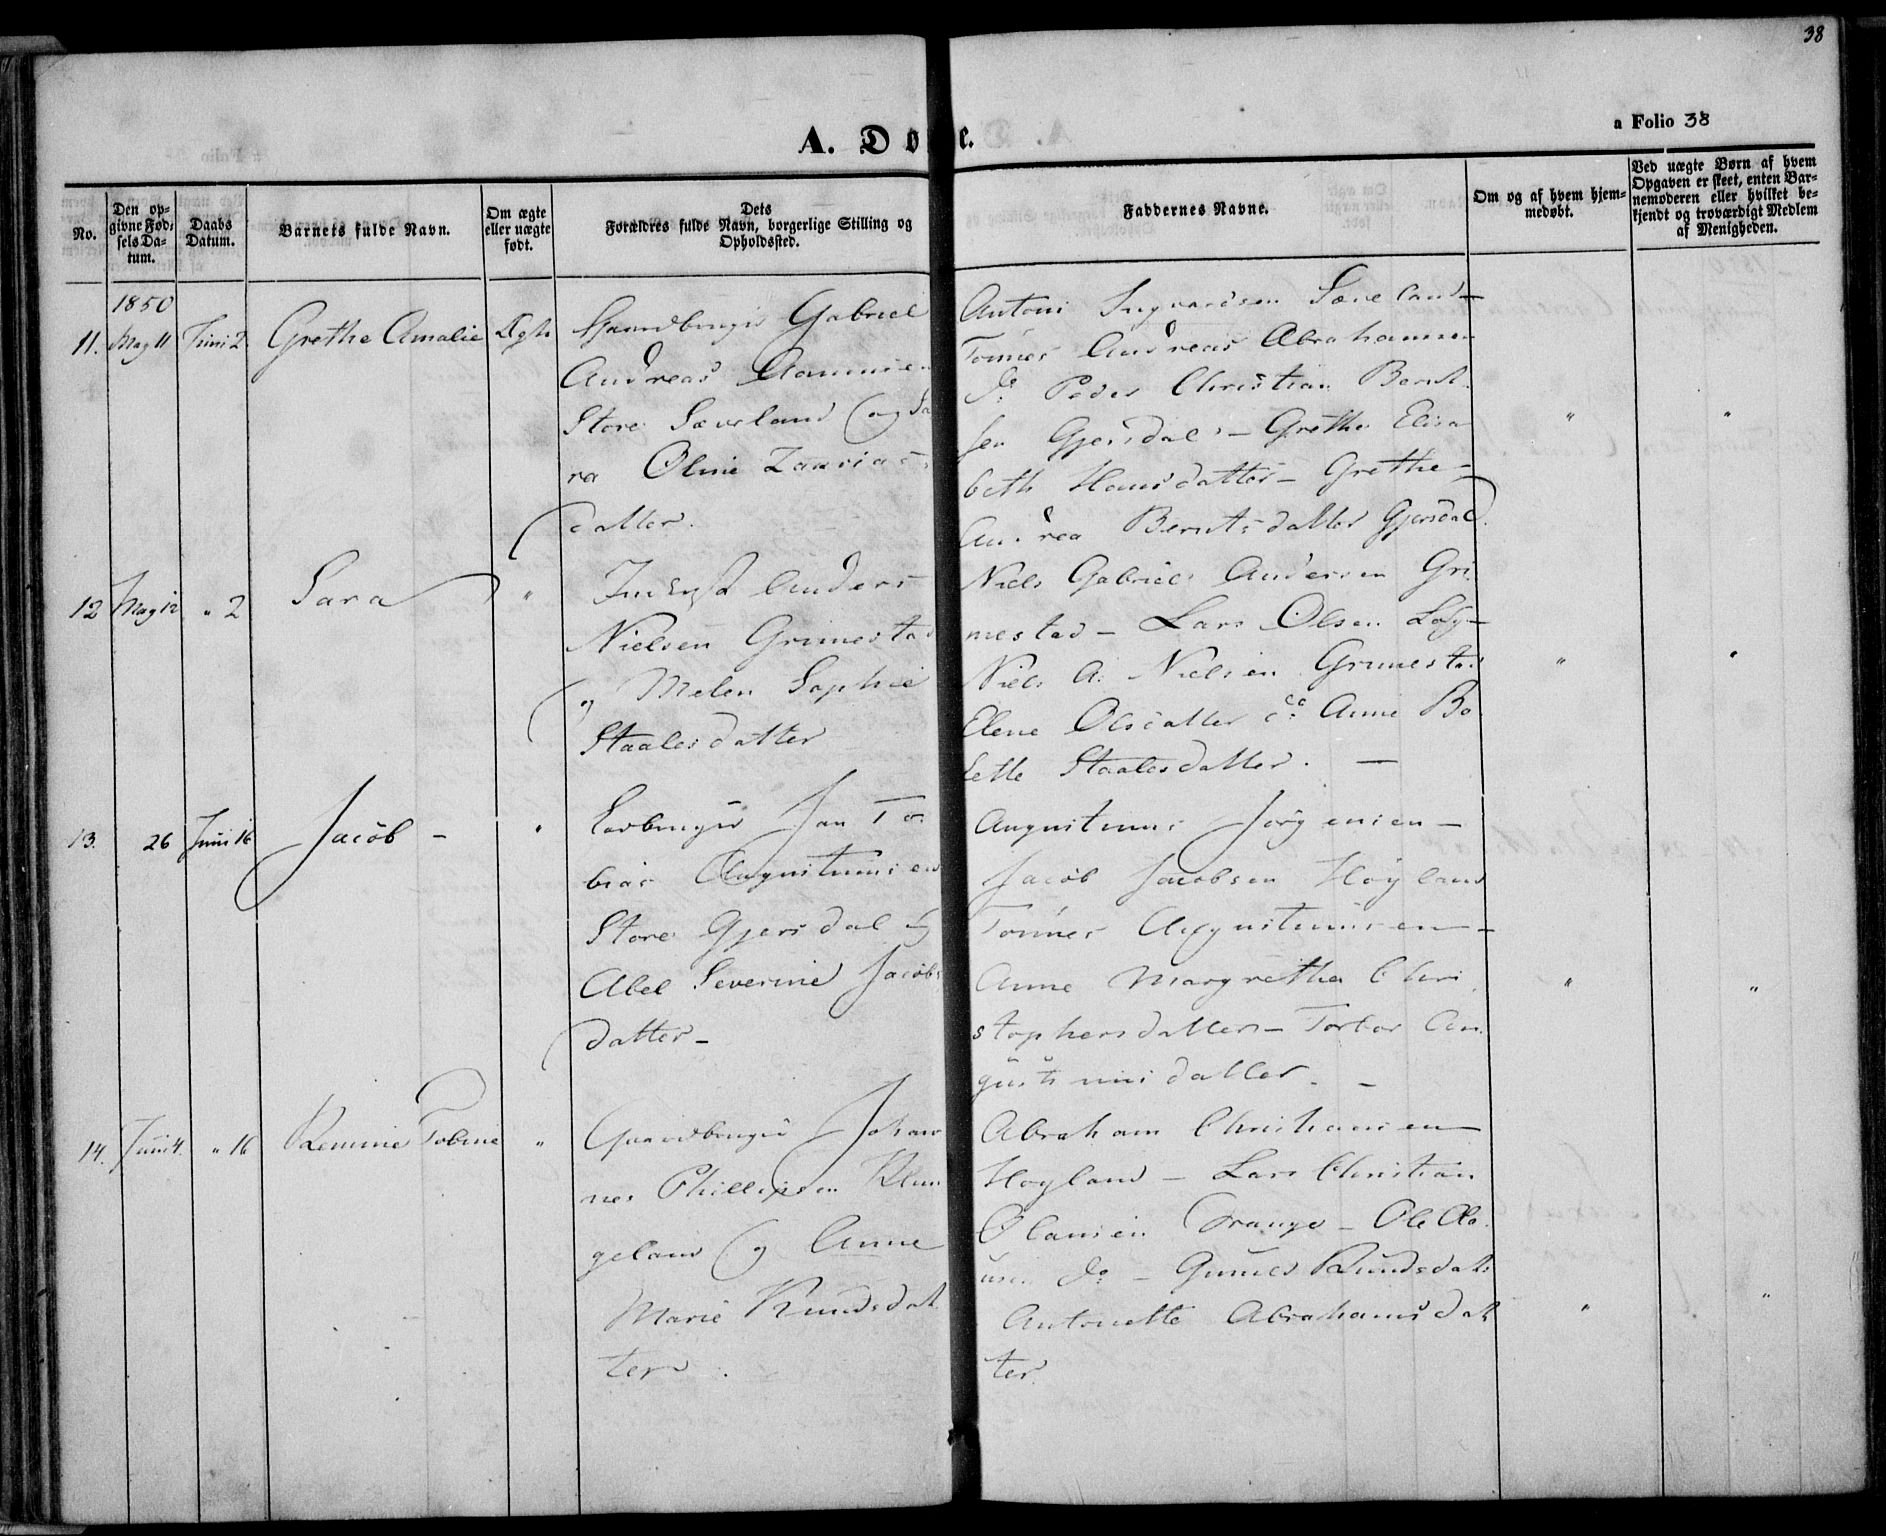 38
a Folio 38
A. Døbte.
No.
Den op-
givne Fød-
sels Da-
tum.
Daabs
Datum.
Barnets fulde Navn.
Om ægte
eller uægte
født.
Dets
Forældres fulde Navn, borgerlige Stilling og
Opholdssted.
Faddernes Navne.
Om og af hvem hjem-
medøbt.
Ved uægte Børn af hvem
Opgaven er skeet, enten Bar-
nemoderen eller hvilket be-
kjendt og troværdigt Medlem
af Menigheden.
1850
11. May 11 Juni 2 Grethe Amalie Ægte
Gaardbruger Gabriel
Andreas
Store Sæveland og Sa
ra Oline Zakrias
datter.
Antoni Ingvardsen Sæveland -
Tönnes Andreas Abrahamsen
do Peder Christian Bernt
sen Gjersdal - Grethe Elisa
beth Hansdatter - Grethe
Andrea Berntsdatter Gjersdal.
" "
12 May 12 " 2 Sara "
Inderst Anders
Nielsen Grimestad
og Melen Sophie
Staalesdatter
Niels Gabriel Andersen Gri
mestad - Lars Olsen
Niels A. Nielsen Grimestad
Elene Olsdatter do Anne Bo
lette Staalesdatter. -
" "
13. 26 Juni 16 Jacob - "
Jan To
bias Augustinusen
Store Gjersdal og
Abel Severine Jacobs
datter -
Augustinus Jörgensen -
Jacob Jacobsen Höyland
Tönnes Augustinusen -
Anne Margrethe Chri
stophersdatter - Torbor Au
gustinusdatter. -
" "
14. Juni 4. " 16 Remine Tobine "
Gaardbruger Johan
nes Phillipsen Klun
geland og Anne
Marie Knudsdat
ter.
Abraham Christiansen
Hoyland - Lars Christian
Olausen Drange - Ole Ola
usen do - Gunild Knudsdat
Antonette Abrahamsdat
ter
" "